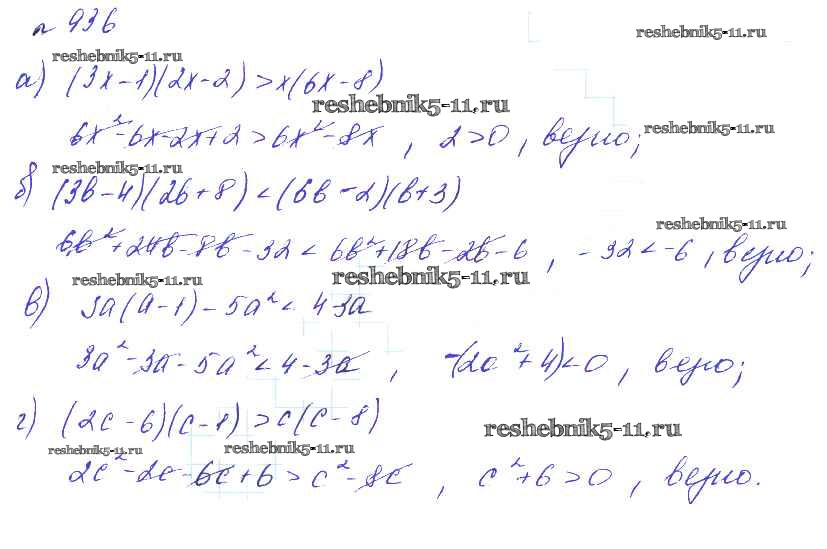 № 936
reshebnik5-11.ru
reshebnik5-11.ru
а) (3x-1)(2x-2) > x(6x-8)
reshebnik5-11.ru
6x²-6x-2x+2 > 6x²-8x , 2>0, верно;
reshebnik5-11.ru
reshebnik5-11.ru
б) (3b-4)(2b+8) < (6b-2)(b+3)
reshebnik5-11.ru
6b²+24b-8b-32 < 6b²+18b-2b-6 , -32<-6, верно;
reshebnik5-11.ru
reshebnik5-11.ru
в) 3a(a-1)-5a² < 4-3a
3a²-3a-5a² < 4-3a , -(2a²+4)<0 , верно;
г) (2c-6)(c-1) > c(c-8)
reshebnik5-11.ru
reshebnik5-11.ru
reshebnik5-11.ru
2c²-2c-6c+6 > c²-8c , c²+6>0 , верно.